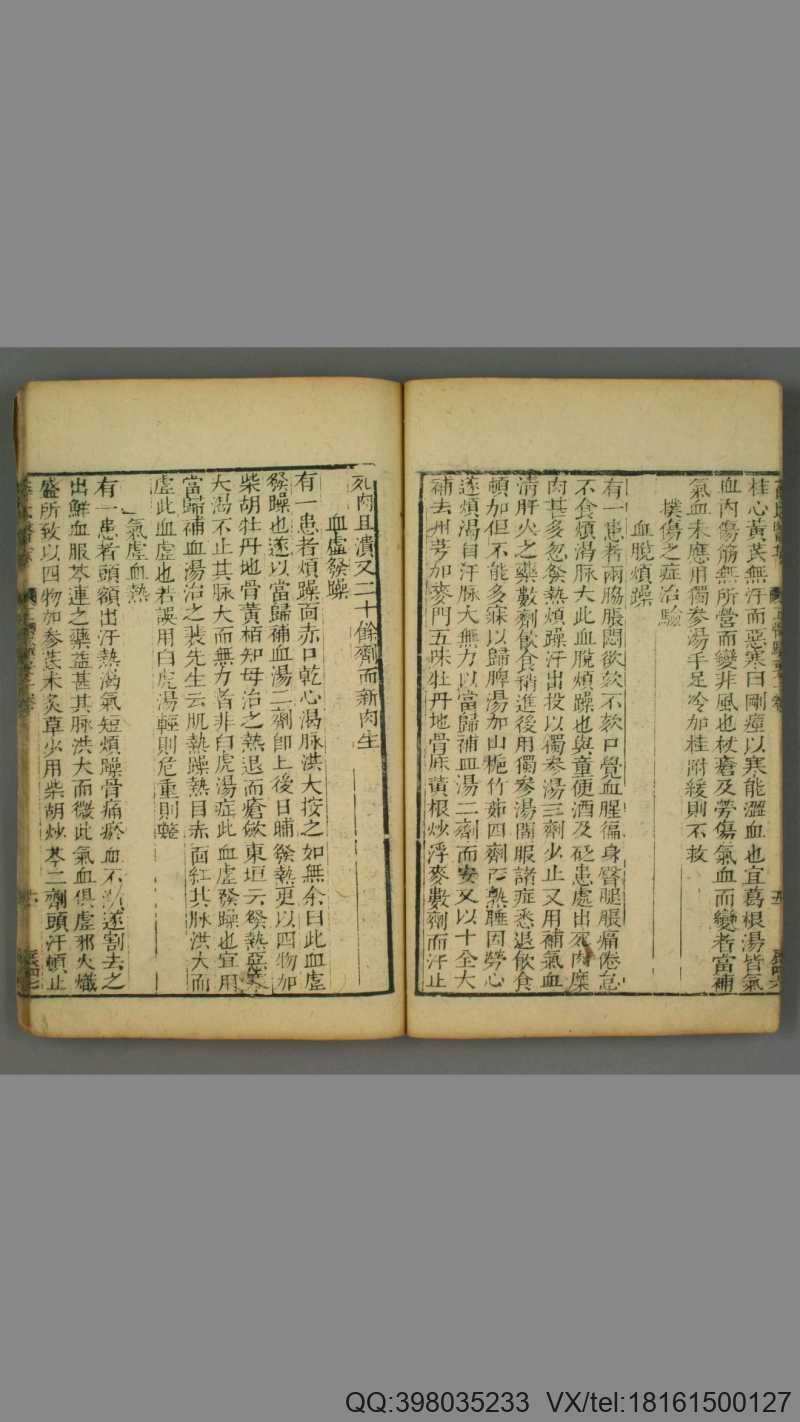 桂心黃芪無汗而惡寒曰剛痙以寒能澀血也宜葛根湯皆氣
血內傷筋無所營而變非風也杖瘡及勞傷氣血而變者當補
氣血未應用獨參湯手足冷加桂附緩則不救
撲傷之症治驗
血脫煩躁
有一患者兩脇脹悶欲欬不欬口覺血腥徧身臀腿脹痛倦怠
不食煩渴脉大此血脫煩躁也與童便酒及砭患處出死肉糜
肉甚多忽發熱煩躁汗出投以獨參湯三劑少止又用補氣血
清肝火之藥數劑飲食稍進後用獨參湯間服諸症悉退飲食
頓加但不能多寐以歸脾湯加山梔竹茹四劑而熟睡因勞心
遂煩渴自汗脉大無力以當歸補血湯二劑而安又以十全大
補去川芎加麥門五味牡丹地骨麻黃根炒浮麥數劑而汗止
死肉且潰又二十餘劑而新肉生
血虛發躁
有一患者煩躁面赤口乾心渴脉洪大按之如無余曰此血虛
發躁也遂以當歸補血湯二劑即止後日晡發熱更以四物加
柴胡牡丹地骨黃栢知母治之熱退而瘡斂東垣云發熱惡寒
大渴不止其脉大而無力者非白虎湯症此血虛發躁也宜用
當歸補血湯治之裴先生云肌熱躁熱目赤面紅其脉洪大而
虛此血虛也若誤用白虎湯輕則危重則斃
氣虛血熱
有一患者頭額出汗熱渴氣短煩躁骨痛瘀血不散遂割去之
出鮮血服芩連之藥益甚其脉洪大而微此氣血俱虛邪火熾
盛所致以四物加參芪朮炙草少用柴胡炒芩二劑頭汗頓止
QQ:398035233 VX/tel:18161500127